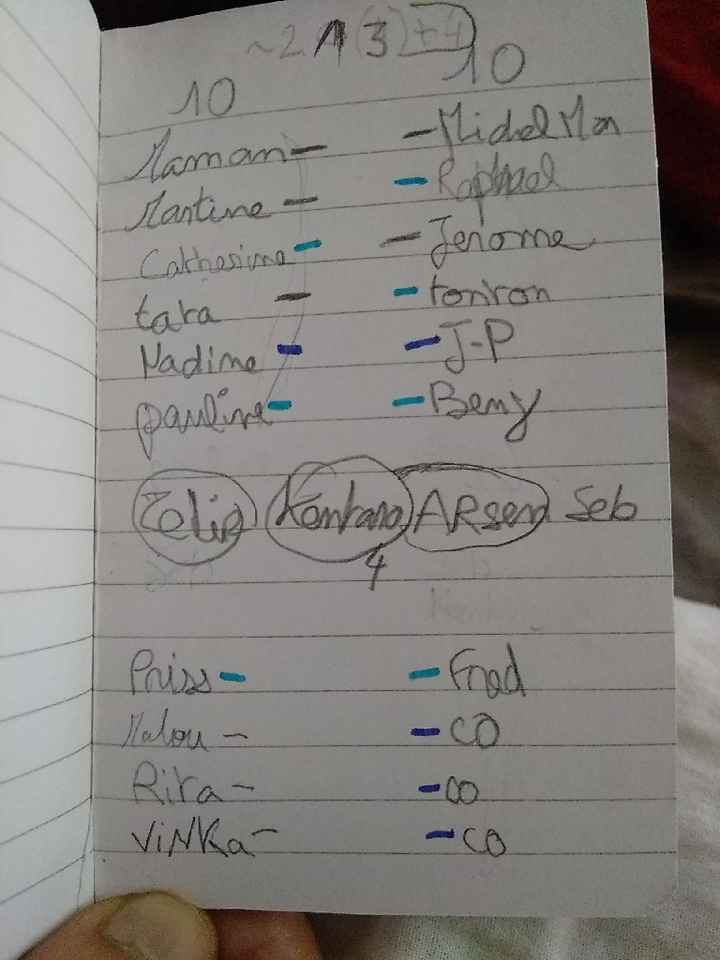 ~2 1 (3)+4
10 10
Maman - - Michel Man
Martine - - Raphael
Catherine - - Jerome
tara - - tonton
Nadine - - J-P
pauline - - Beny
Zelie Kentano ARsen Seb
4
Priss - - Fred
Malou - - CO
Rita - - CO
ViNKa - - CO